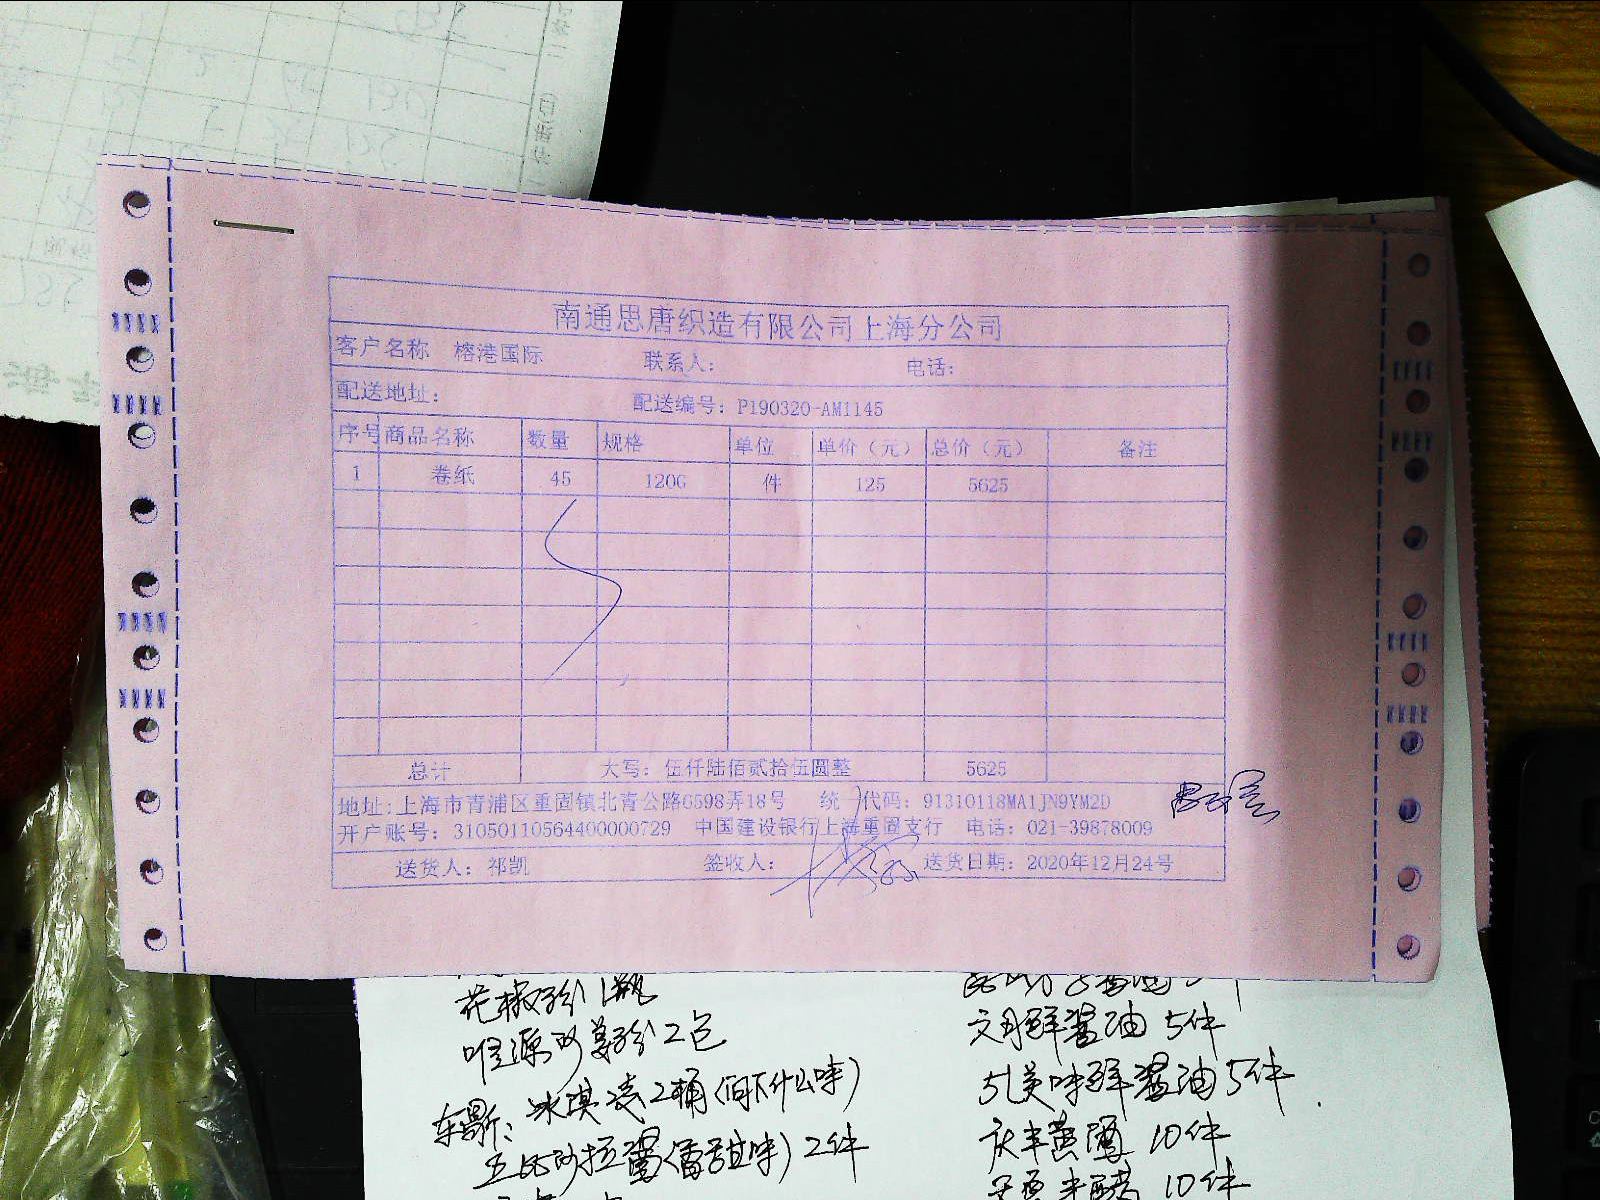 南通思唐织造有限公司上海分公司
客户名称 榕港国际 联系人： 电话：
配送地址： 配送编号：P190320-AM1145
序号 商品名称 数量 规格 单位 单价（元） 总价（元） 备注
1 卷纸 45 120G 件 125 5625
总计 大写：伍仟陆佰贰拾伍圆整 5625
地址：上海市青浦区重固镇北青公路6598弄18号 统一代码：91310118MA1JN9YM2D
开户账号：31050110564400000729 中国建设银行上海重固支行 电话：021-39878009
送货人：祁凯 签收人： 送货日期：2020年12月24号
花椒粉1瓶
姜粉2包
冰淇凌2桶（问下什么味）
沙拉酱 2件
鲜酱油 5件
美味鲜酱油5件
10件
10件